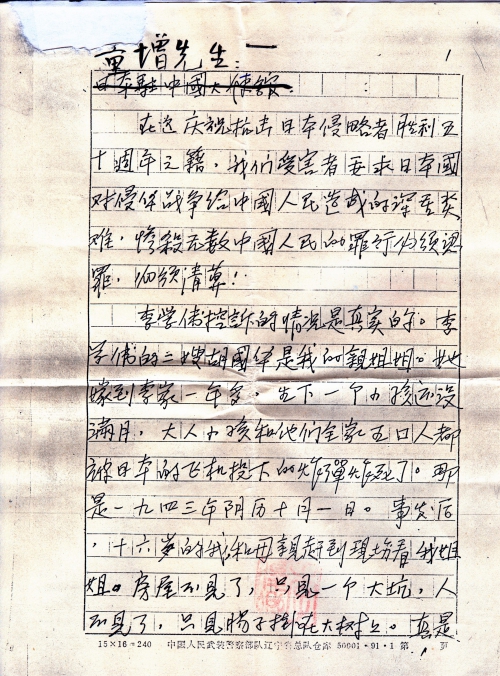 童增先生：
1
日本駐中國大使館
在这庆祝抗击日本侵略者胜利五
十週年之籍，我们受害者要求日本國
对侵华战争给中國人民造成的深重灾
难，惨殺无数中國人民的罪行必须認
罪，必须清算！
李学伟控訴的情况是真实的。李
学伟的二嫂胡國华是我的親姐姐。她
嫁到李家一年多，生下一个小孩还没
满月，大人小孩和他们全家五口人都
被日本的飞机投下的炸彈炸死了。那
是一九四三年阴历十月一日。事发后
，十六岁的我和母親赶到現场看我姐
姐。房屋不見了，只見一个大坑，人
不見了，只見腸子掛在大树上。真是
15×16=240 中国人民武装警察部队辽宁省总队仓库 50001·91·1 第 页